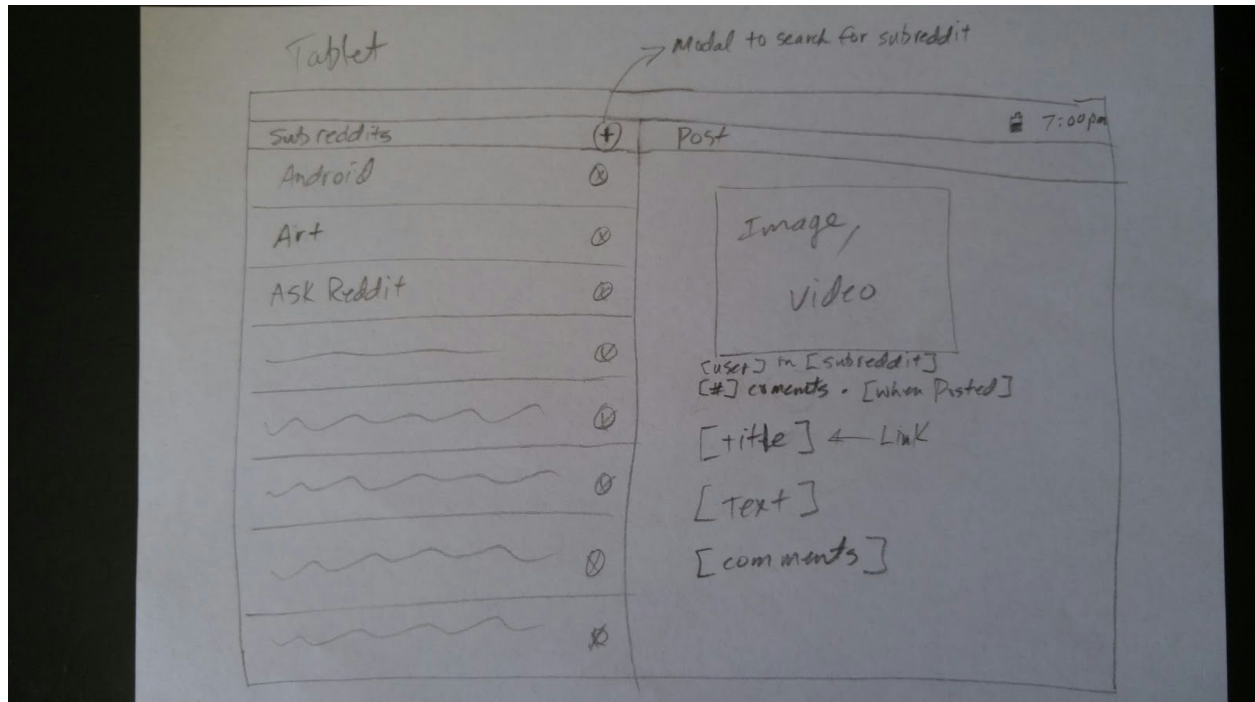 Tablet
Modal to search for subreddit
7:00pm
Subreddits + Post
Android x
Art x
ASK Reddit x
Image,
video
[user] in [subreddit]
[#] comments • [when Posted]
[title] ← Link
[Text]
[comments]